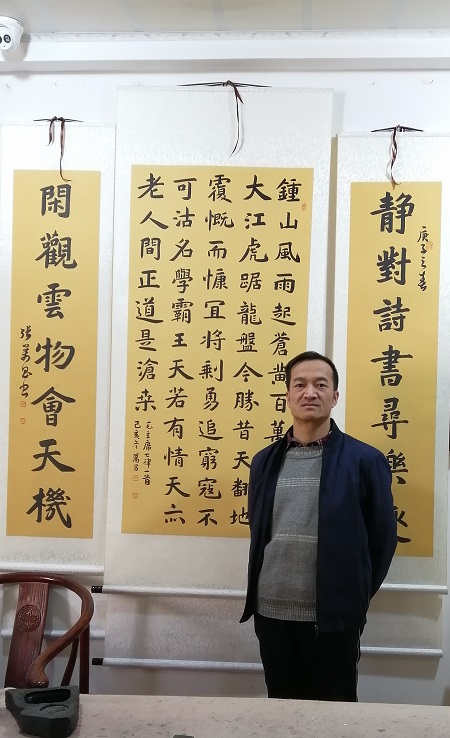 庚子之春
靜對詩書尋樂
鍾山風雨起蒼黃百萬
大江虎踞龍盤今勝昔天翻地
覆慨而慷冝將剩勇追窮寇不
可沽名學霸王天若有情天亦
老人間正道是滄桒
毛主席七律一首
己亥冬萬昌
閑觀雲物會天機
張萬昌书